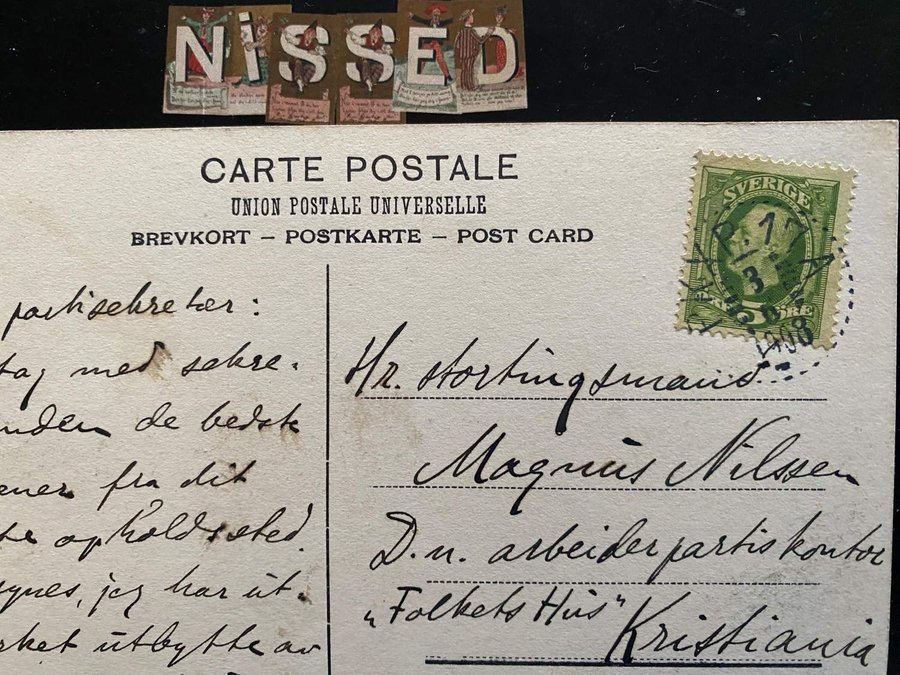 NiSSED
CARTE POSTALE
UNION POSTALE UNIVERSELLE
BREVKORT – POSTKARTE – POST CARD
SVERIGE
ÖRE
1908
partisekretær:
tag med sekre-
nden de bedste
ener fra dit
te opholdssted.
synes, jeg har ut-
rket utbytte av
Hr. stortingsmand
Magnus Nilssen
D.n. arbeiderpartis kontor
„Folkets Hus"
Kristiania